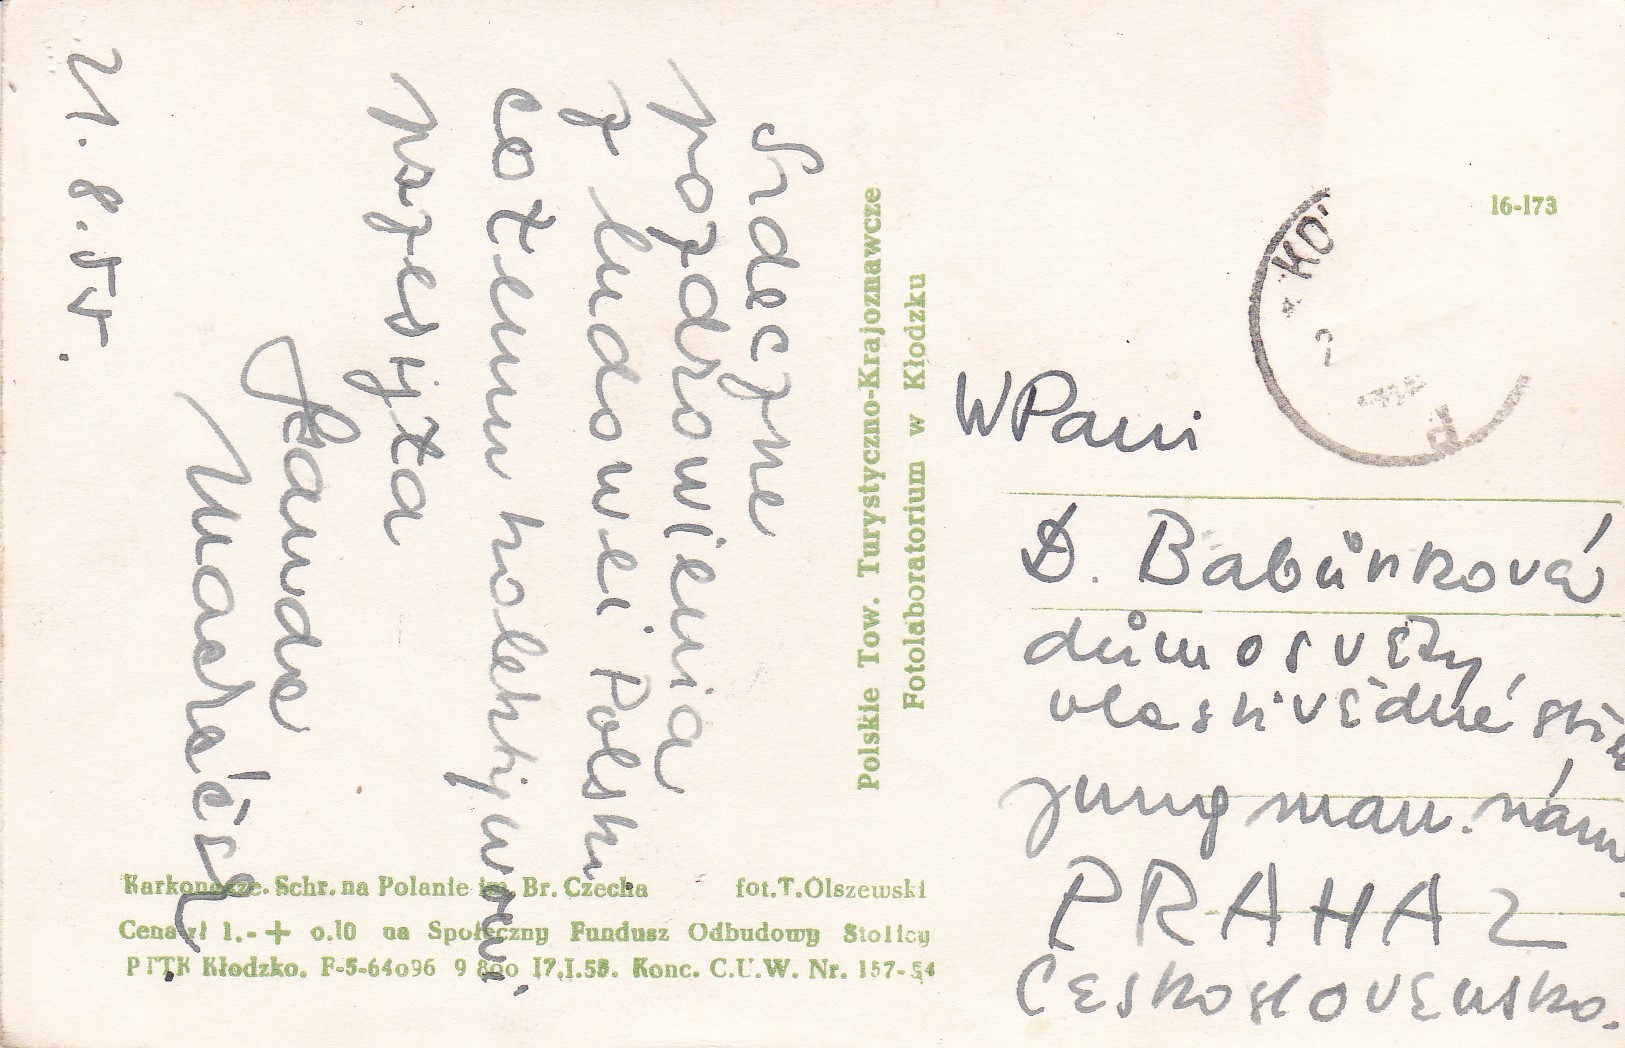 Srdeczne
pozdrowienia
z ludowei Polski
całemu kolektywowi
przesyła
Wanda
21.8.55.
Polskie Tow. Turystyczno-Krajoznawcze
Fotolaboratorium w Kłodzku
16-173
KO
2
d
WPani
D. Babůnková
dům osvěty
vlastivědné
jungman. nám
PRAHA 2
Československo.
Karkonosze. Schr. na Polanie im. Br. Czecha fot. T. Olszewski
Cena zł 1.-+ 0.10 na Społeczny Fundusz Odbudowy Stolicy
PTTK Kłodzko. F-5-64096 9 800 17.I.55. Konc. C.U.W. Nr. 157-54